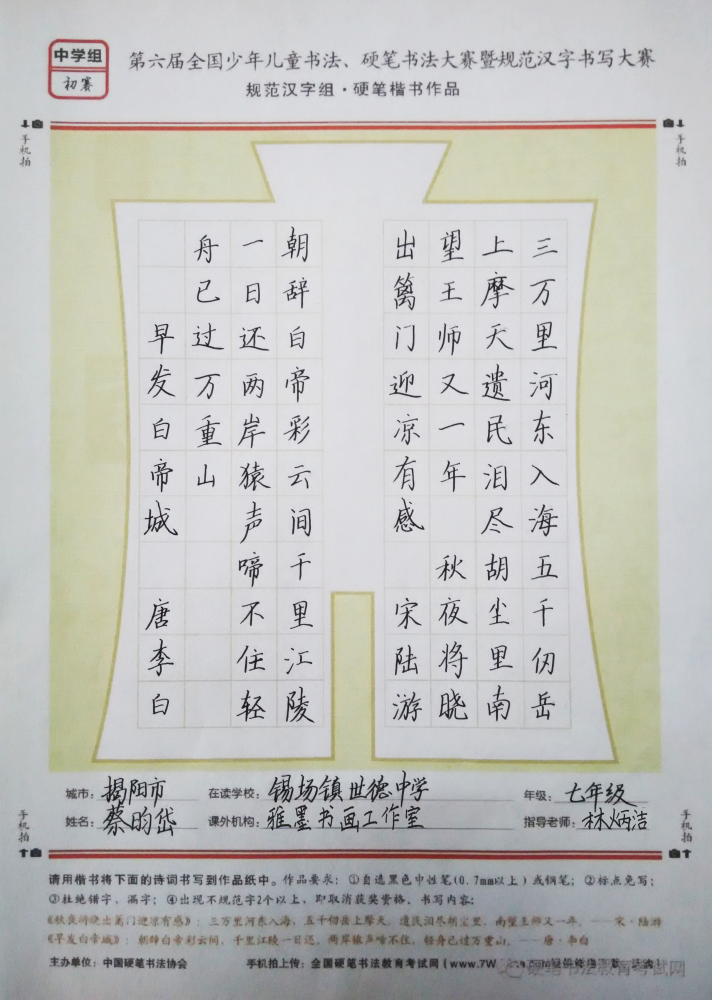 中学组
初赛
第六届全国少年儿童书法、硬笔书法大赛暨规范汉字书写大赛
规范汉字组·硬笔楷书作品
手机拍
手机拍
三万里河东入海五千仞岳
上摩天遗民泪尽胡尘里南
望王师又一年 秋夜将晓
出篱门迎凉有感 宋陆游
朝辞白帝彩云间千里江陵
一日还两岸猿声啼不住轻
舟已过万重山
早发白帝城 唐李白
城市：揭阳市 在读学校：锡场镇世德中学 年级：七年级
姓名：蔡昀岱 课外机构：雅墨书画工作室 指导老师：林炳洁
手机拍
手机拍
请用楷书将下面的诗词书写到作品纸中。作品要求：①自选黑色中性笔(0.7mm以上)或钢笔；②标点免写；
③杜绝错字、漏字；④出现不规范字2个以上，即取消获奖资格、书写内容：
《秋夜将晓出篱门迎凉有感》：三万里河东入海，五千仞岳上摩天。遗民泪尽胡尘里，南望王师又一年。——宋·陆游
《早发白帝城》：朝辞白帝彩云间，千里江陵一日还。两岸猿声啼不住，轻舟已过万重山。——唐·李白
主办单位：中国硬笔书法协会 手机拍上传：全国硬笔书法教育考试网(www.7W
硬笔书法教育考试网